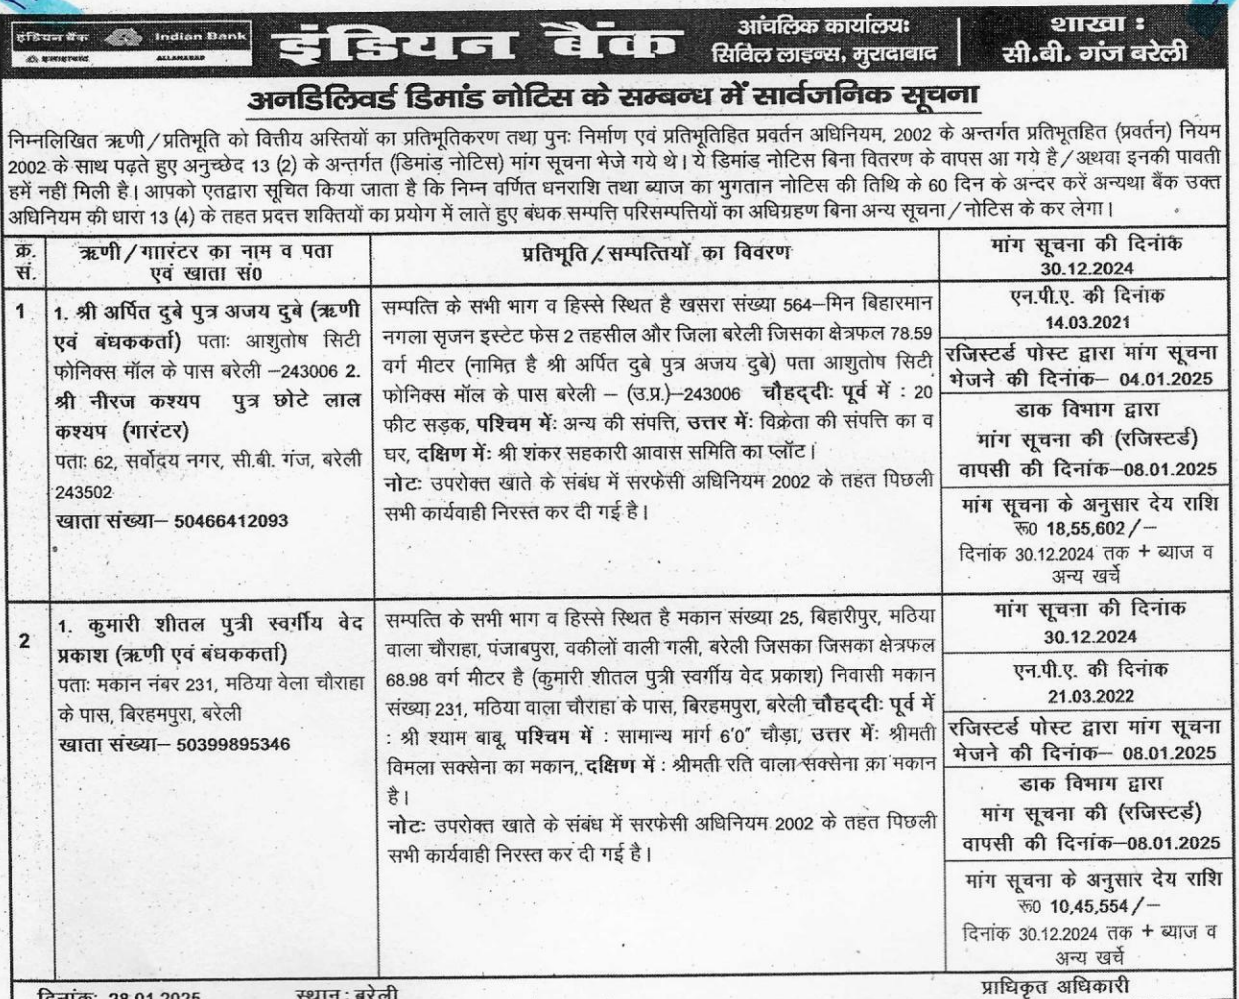 इंडियन बैंक Indian Bank
इलाहाबाद ALLAHABAD
इंडियन बैंक
आंचलिक कार्यालयः
सिविल लाइन्स, मुरादाबाद
शाखा :
सी.बी. गंज बरेली
अनडिलिवर्ड डिमांड नोटिस के सम्बन्ध में सार्वजनिक सूचना
निम्नलिखित ऋणी/प्रतिभूति को वित्तीय अस्तियों का प्रतिभूतिकरण तथा पुनः निर्माण एवं प्रतिभूतिहित प्रवर्तन अधिनियम, 2002 के अन्तर्गत प्रतिभूतहित (प्रवर्तन) नियम
2002 के साथ पढ़ते हुए अनुच्छेद 13 (2) के अन्तर्गत (डिमांड़ नोटिस) मांग सूचना भेजे गये थे। ये डिमांड नोटिस बिना वितरण के वापस आ गये है/अथवा इनकी पावती
हमें नहीं मिली है। आपको एतद्वारा सूचित किया जाता है कि निम्न वर्णित धनराशि तथा ब्याज का भुगतान नोटिस की तिथि के 60 दिन के अन्दर करें अन्यथा बैंक उक्त
अधिनियम की धारा 13 (4) के तहत प्रदत्त शक्तियों का प्रयोग में लाते हुए बंधक सम्पत्ति परिसम्पत्तियों का अधिग्रहण बिना अन्य सूचना/नोटिस के कर लेगा।
क्र.
सं.
ऋणी/गाारंटर का नाम व पता
एवं खाता सं0
प्रतिभूति/सम्पत्तियों का विवरण
मांग सूचना की दिनांक
30.12.2024
1
1. श्री अर्पित दुबे पुत्र अजय दुबे (ऋणी
एवं बंधककर्ता) पताः आशुतोष सिटी
फोनिक्स मॉल के पास बरेली –243006 2.
श्री नीरज कश्यप पुत्र छोटे लाल
कश्यप (गारंटर)
पताः 62, सर्वोदय नगर, सी.बी. गंज, बरेली
243502
खाता संख्या– 50466412093
सम्पत्ति के सभी भाग व हिस्से स्थित है खसरा संख्या 564–मिन बिहारमान
नगला सृजन इस्टेट फेस 2 तहसील और जिला बरेली जिसका क्षेत्रफल 78.59
वर्ग मीटर (नामित है श्री अर्पित दुबे पुत्र अजय दुबे) पता आशुतोष सिटी
फोनिक्स मॉल के पास बरेली – (उ.प्र.)–243006 चौहद्दीः पूर्व में : 20
फीट सड़क, पश्चिम मेंः अन्य की संपत्ति, उत्तर मेंः विक्रेता की संपत्ति का व
घर, दक्षिण मेंः श्री शंकर सहकारी आवास समिति का प्लॉट।
नोटः उपरोक्त खाते के संबंध में सरफेसी अधिनियम 2002 के तहत पिछली
सभी कार्यवाही निरस्त कर दी गई है।
एन.पी.ए. की दिनांक
14.03.2021
रजिस्टर्ड पोस्ट द्वारा मांग सूचना
भेजने की दिनांक– 04.01.2025
डाक विभाग द्वारा
मांग सूचना की (रजिस्टर्ड)
वापसी की दिनांक–08.01.2025
मांग सूचना के अनुसार देय राशि
रू0 18,55,602/–
दिनांक 30.12.2024 तक + ब्याज व
अन्य खर्चे
2
1. कुमारी शीतल पुत्री स्वर्गीय वेद
प्रकाश (ऋणी एवं बंधककर्ता)
पताः मकान नंबर 231, मठिया वेला चौराहा
के पास, बिरहमपुरा, बरेली
खाता संख्या– 50399895346
सम्पत्ति के सभी भाग व हिस्से स्थित है मकान संख्या 25, बिहारीपुर, मठिया
वाला चौराहा, पंजाबपुरा, वकीलों वाली गली, बरेली जिसका जिसका क्षेत्रफल
68.98 वर्ग मीटर है (कुमारी शीतल पुत्री स्वर्गीय वेद प्रकाश) निवासी मकान
संख्या 231, मठिया वाला चौराहा के पास, बिरहमपुरा, बरेली चौहद्दीः पूर्व में
: श्री श्याम बाबू, पश्चिम में : सामान्य मार्ग 6'0" चौड़ा, उत्तर मेंः श्रीमती
विमला सक्सेना का मकान, दक्षिण में : श्रीमती रति वाला सक्सेना का मकान
है।
नोटः उपरोक्त खाते के संबंध में सरफेसी अधिनियम 2002 के तहत पिछली
सभी कार्यवाही निरस्त कर दी गई है।
मांग सूचना की दिनांक
30.12.2024
एन.पी.ए. की दिनांक
21.03.2022
रजिस्टर्ड पोस्ट द्वारा मांग सूचना
भेजने की दिनांक– 08.01.2025
डाक विभाग द्वारा
मांग सूचना की (रजिस्टर्ड)
वापसी की दिनांक–08.01.2025
मांग सूचना के अनुसार देय राशि
रू0 10,45,554/–
दिनांक 30.12.2024 तक + ब्याज व
अन्य खर्चे
दिनांकः 28.01.2025 स्थान : बरेली प्राधिकृत अधिकारी